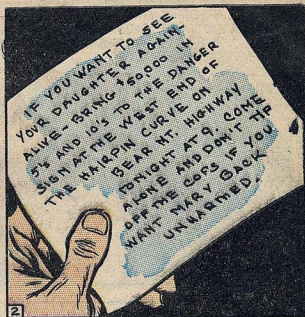 IF YOU WANT TO SEE
YOUR DAUGHTER AGAIN-
ALIVE - BRING $50,000 IN
5'S AND 10'S TO THE DANGER
SIGN AT THE WEST END OF
THE HAIRPIN CURVE ON
BEAR MT. HIGHWAY
TONIGHT AT 9. COME
ALONE AND DON'T TIP
OFF THE COPS IF YOU
WANT MARY BACK
UNHARMED.
2